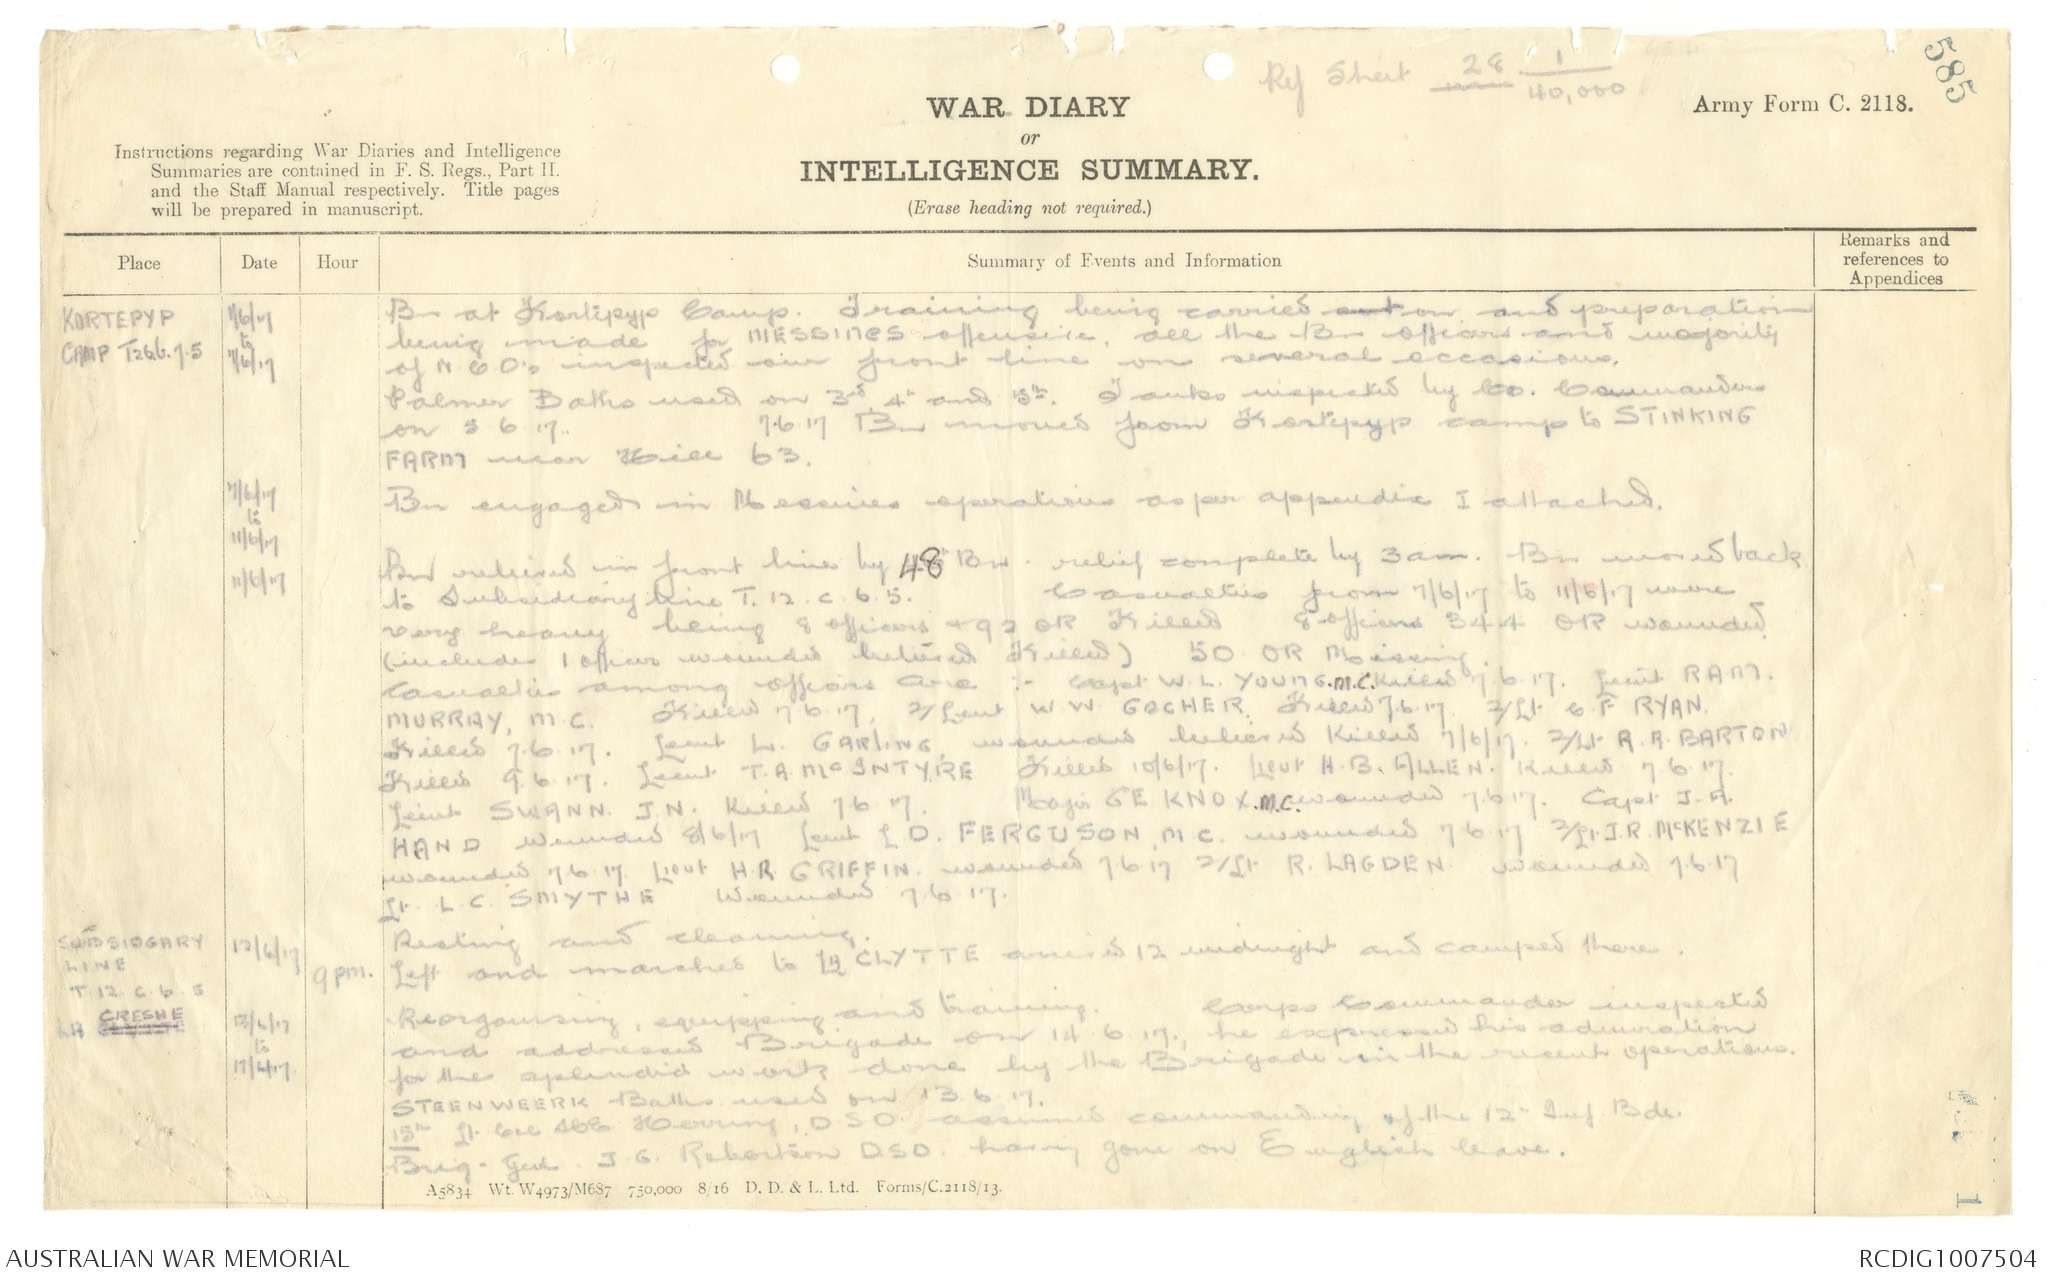 585
Ref Sheet 28 1/40,000
WAR DIARY
or
INTELLIGENCE SUMMARY.
(Erase heading not required.)
Army Form C. 2118.
Instructions regarding War Diaries and Intelligence
Summaries are contained in F. S. Regs., Part II.
and the Staff Manual respectively. Title pages
will be prepared in manuscript.
Place Date Hour Summary of Events and Information Remarks and references to Appendices
KORTEPYP 1/6/17 Bn at Kortepyp Camp. Training being carried out on and preparation
CAMP T26b.7.5 to 7/6/17 being made for MESSINES offensive, all the Bn officers and majority
of N.C.O's inspected our front line on several occasions.
Palmer Baths used on 3rd, 4th and 5th. Tanks inspected by Co. Commanders
on 5.6.17. 7.6.17 Bn moved from Kortepyp camp to STINKING
FARM near Hill 63.
7/6/17 to 11/6/17 Bn engaged in Messines operations as per appendix I attached.
11/6/17 Bn relieved in front line by 48 Bn. relief complete by 3am. Bn moved back
to Subsidiary line T.12.c.6.5. Casualties from 7/6/17 to 11/6/17 were
very heavy being 8 officers + 92 OR Killed 8 officers 344 OR wounded
(includes 1 officer wounded believed Killed) 50 OR Missing.
Casualties among officers are :- Capt W.L. YOUNG. M.C. Killed 7.6.17. Lieut RAM.
MURRAY, M.C. Killed 7.6.17, 2/Lieut W W GOCHER. Killed 7.6.17. 2/Lt C F RYAN.
Killed 7.6.17. Lieut L. GARLING, wounded believed Killed 7/6/17. 2/Lt A.A. BARTON
Killed 9.6.17. Lieut T.A. McINTYRE Killed 10/6/17. Lieut H.B. ALLEN. Killed 7.6.17.
Lieut SWANN. J.N. Killed 7.6.17. Major GE KNOX. M.C. wounded 7.6.17. Capt J.A.
HAND wounded 8/6/17 Lieut L.D. FERGUSON, M C. wounded 7.6.17 2/Lt J.R. McKENZIE
wounded 7.6.17. Lieut H.R GRIFFIN. wounded 7.6.17 2/Lt R. LAGDEN. wounded 7.6.17
Lt. L.C. SMYTHE Wounded 7.6.17.
SUBSIDGARY 12/6/17 Resting and cleaning.
LINE 9 pm. Left and marched to LA CLYTTE arrived 12 midnight and camped there.
T.12.c.6.5
LA CRESHE 13/6/17 Reorganising, equipping and training. Corps Commander inspected
to and addressed Brigade on 14.6.17, he expressed his admiration
17/6/17 for the splendid work done by the Brigade in the recent operations.
STEENWEERK Baths used on 13.6.17.
15th Lt Col Herring, DSO. assumed commanding of the 12th Inf. Bde.
Brig-Genl. J.C. Robertson D.S.O. having gone on English leave.
A5834 Wt. W4973/M687 750,000 8/16 D. D. & L. Ltd. Forms/C.2118/13.
1
AUSTRALIAN WAR MEMORIAL RCDIG1007504